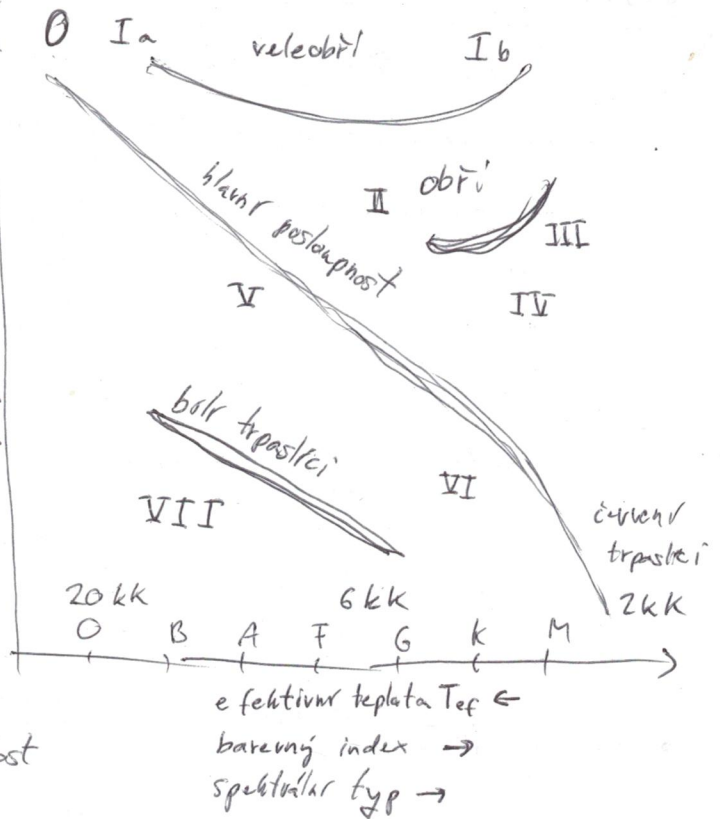 0 Ia veleobři Ib
II obři
III
hlavní posloupnost
V
IV
bílí trpaslíci
VI
VII
červení
trpaslíci
20 kK 6 kK 2 kK
O B A F G K M
efektivní teplota Tef ←
barevný index →
spektrální typ →
ost